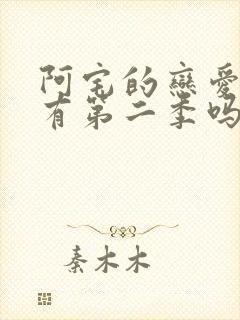 阿宅的戀愛
有第二季吗
秦木木